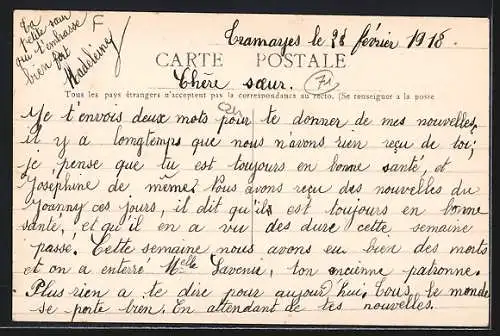 Ta
petite sœur
qui t'embrasse
bien fort
Madeleine
F
Tramayes le 28 février 1918.
CARTE POSTALE
Chère sœur.
71
Tous les pays étrangers n'acceptent pas la correspondance au recto. (Se renseigner a la poste
Je t'envois deux mots pour te donner de mes nouvelles,
il y a longtemps que nous n'avons rien reçu de toi;
je pense que tu est toujours en bonne santé, et
Joséphine de même. Nous avons reçu des nouvelles du
Joanny ces jours, il dit qu'ils est toujours en bonne
santé, et qu'il en a vu des dure cette semaine
passe. Cette semaine nous avons eu bien des morts
et on a enterré Melle Lavenir, ton ancienne patronne.
Plus rien a te dire pour aujourd'hui. Tous le monde
se porte bien. En attendant de tes nouvelles.